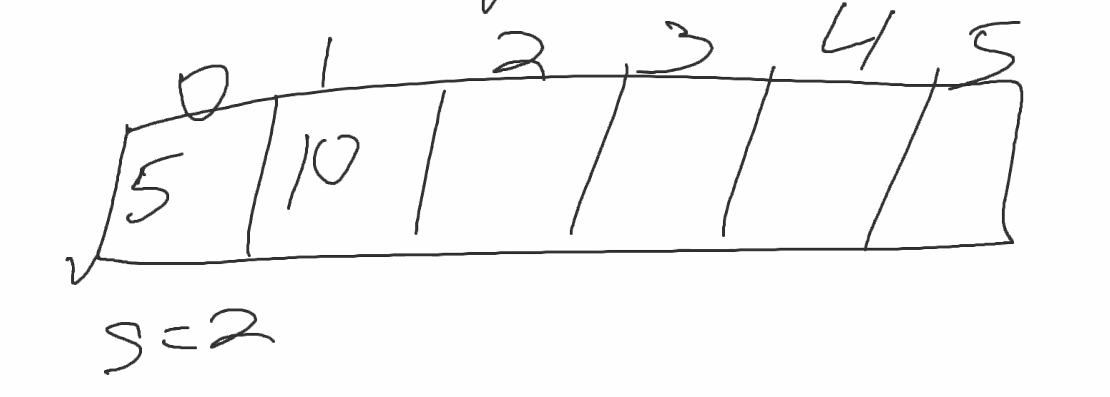 0 1 2 3 4 5
5 10
v
s=2